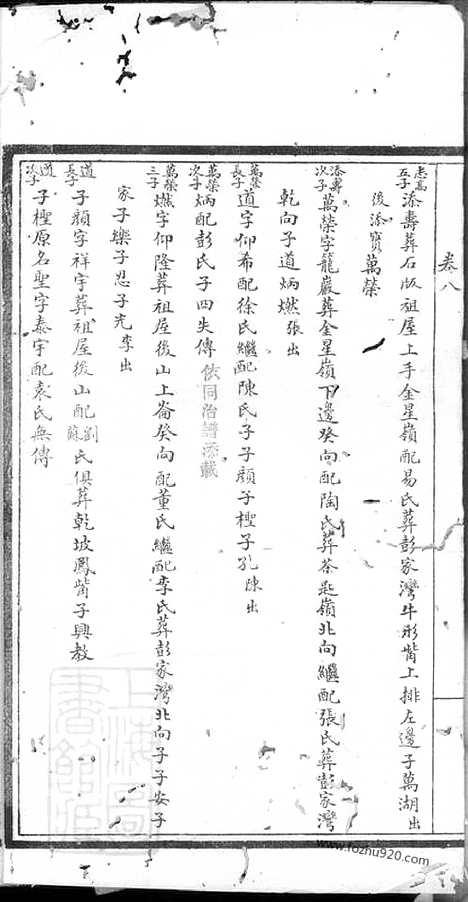 卷八
志高五子 添壽葬石版祖屋上手金星嶺配易氏葬彭家灣牛形觜上排左邊子萬湖出
後添寶萬榮
添壽次子 萬榮字龍巖葬金星嶺下邊癸向配陶氏葬茶匙嶺北向繼配張氏葬彭家灣
乾向子道炳燃張出
萬榮長子 道字仰希配徐氏繼配陳氏子子顏子檉子孔陳出
萬榮次子 炳配彭氏子四失傳依同治譜添載
萬榮三子 燃字仰隆葬祖屋後山上崙癸向配董氏繼配李氏葬彭家灣北向子子安子
家子樂子忍子先李出
道長子 子顏字祥宇葬祖屋後山配劉蘇氏俱葬乾坡鳳觜子興教
道次子 子檉原名聖字泰宇配袁氏無傳
上海圖書館藏
www.fozhu920.com